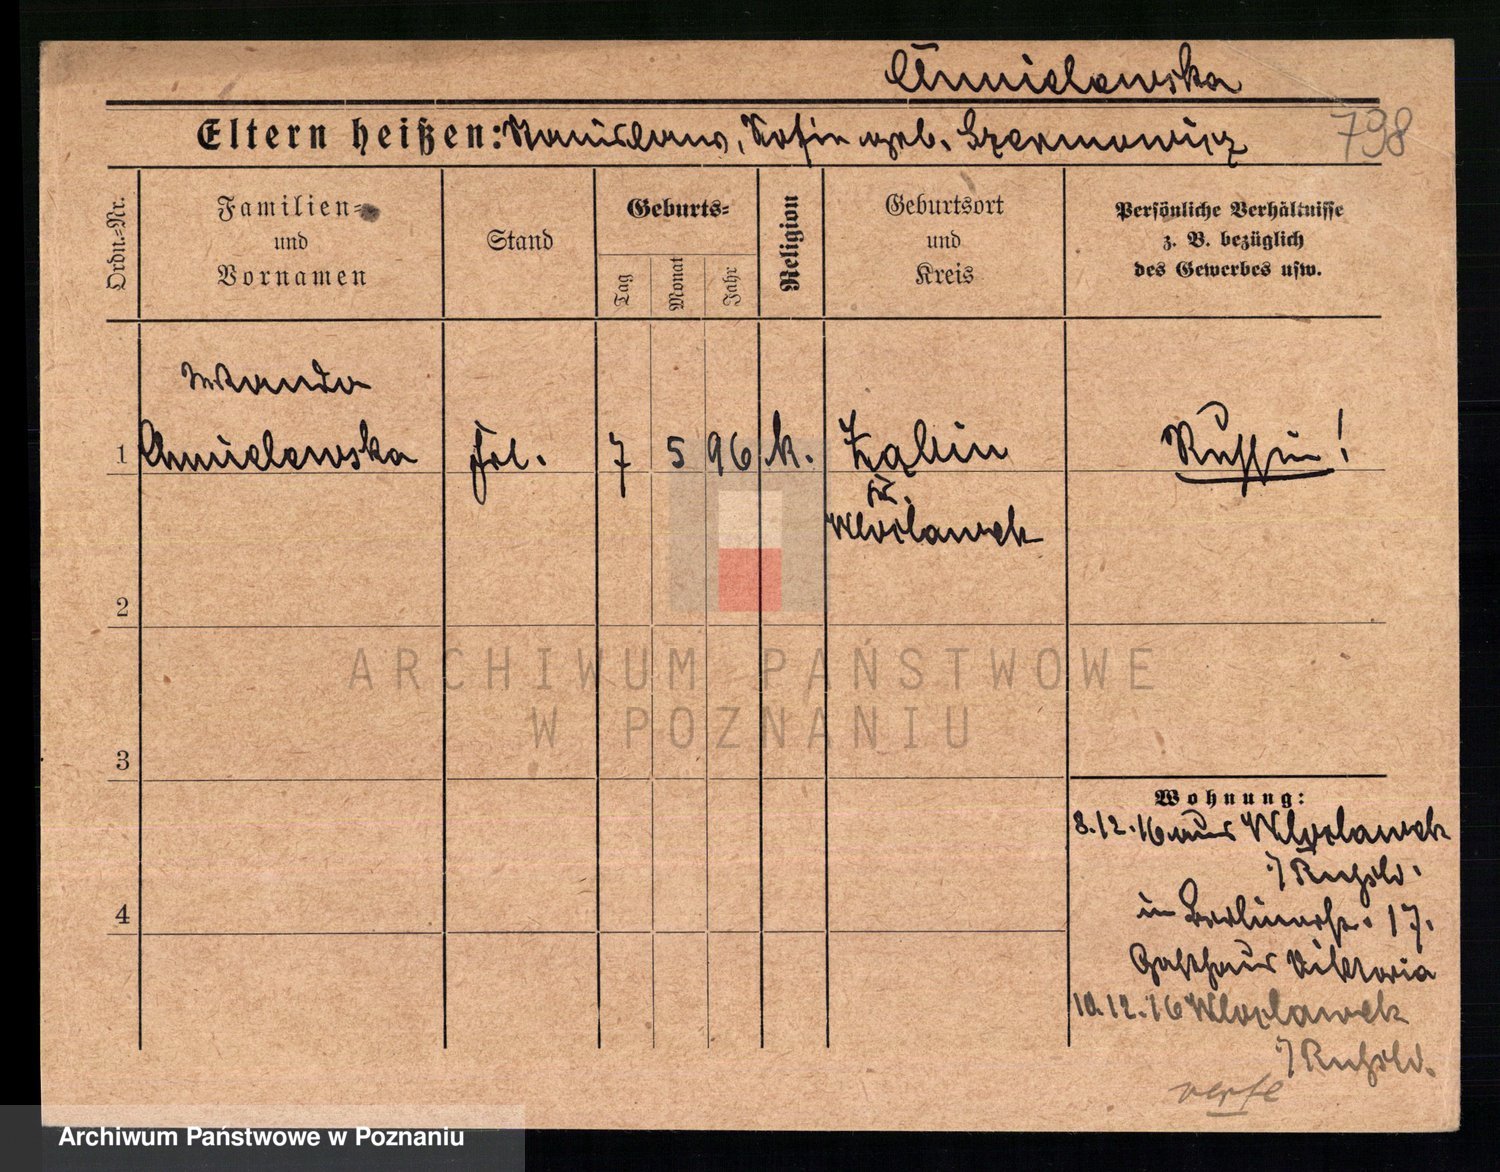 Chmielewska
798
Eltern heißen: Stanislaus, Sofie geb. Szermowicz
Ordn.-Nr.
Familien-
und
Vornamen
Stand
Geburts-
Tag
Monat
Jahr
Religion
Geburtsort
und
Kreis
Persönliche Verhältnisse
z. B. bezüglich
des Gewerbes usw.
Wanda
1 Chmielewska Frl. 7 5 96 k. Russin!
Kr.
Wloclawek
2
3
4
Wohnung:
8.12.16 aus Wloclawek
i/Rußld.
in Berlinerstr. 17.
Gasthaus Viktoria
10.12.16 Wloclawek
i/Rußld.
ARCHIWUM PAŃSTWOWE
W POZNANIU
Archiwum Państwowe w Poznaniu